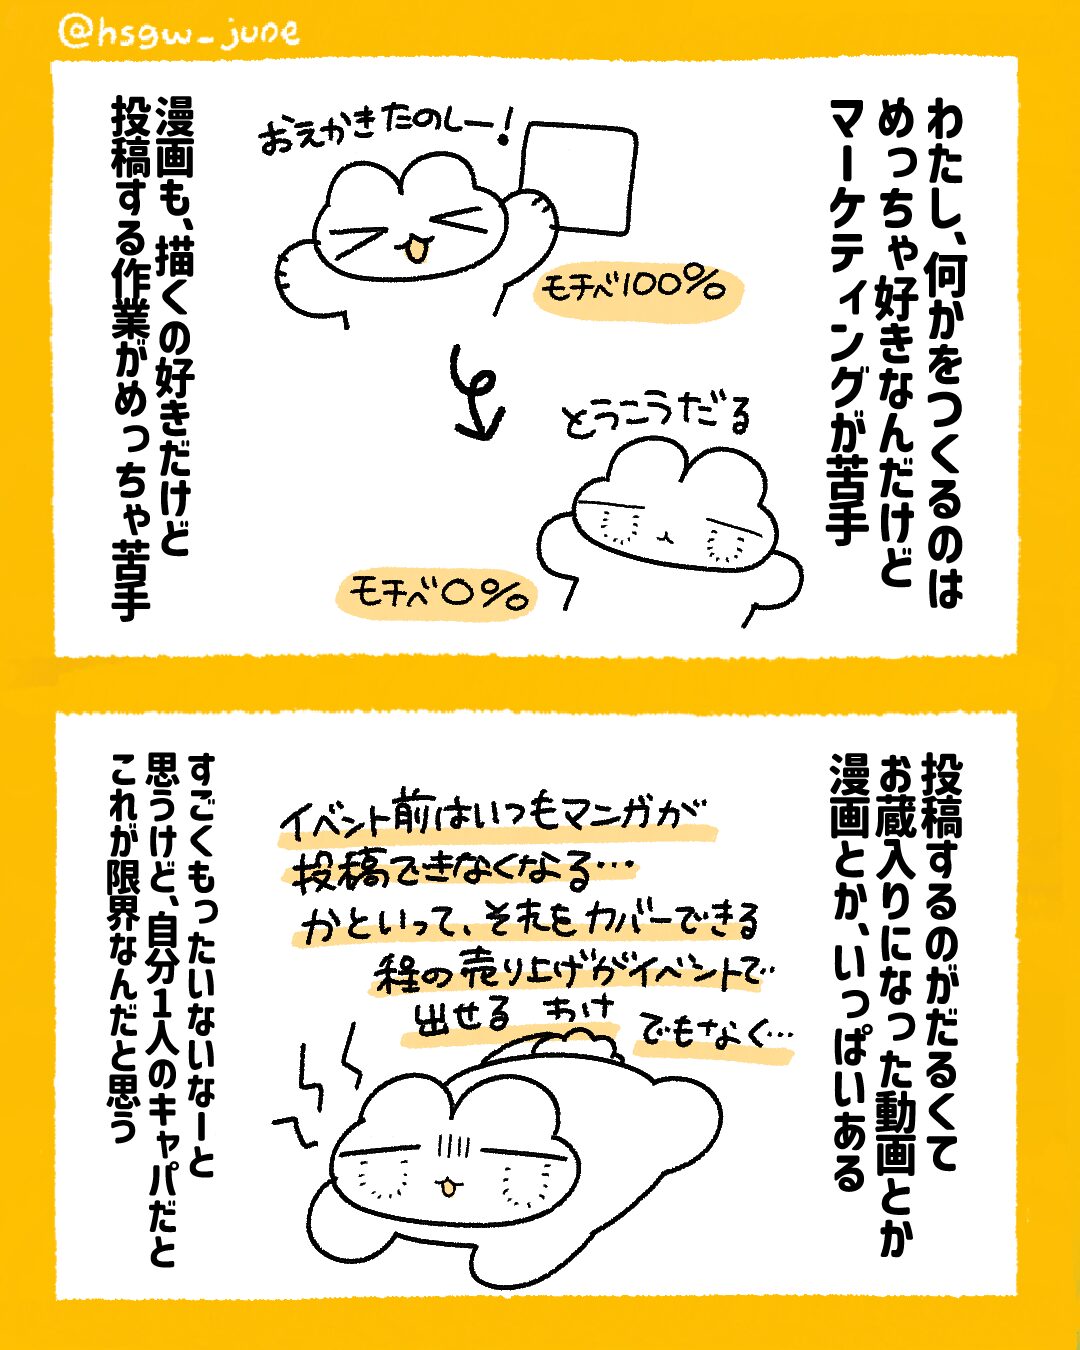 @hsgw_june
わたし、何かをつくるのは
めっちゃ好きなんだけど
マーケティングが苦手
おえかきたのしー！
モチベ100%
とうこうだる
モチベ0%
漫画も、描くの好きだけど
投稿する作業がめっちゃ苦手
投稿するのがだるくて
お蔵入りになった動画とか
漫画とか、いっぱいある
イベント前はいつもマンガが
投稿できなくなる…
かといって、それをカバーできる
程の売り上げがイベントで
出せる わけ でもなく…
すごくもったいないなーと
思うけど、自分1人のキャパだと
これが限界なんだと思う